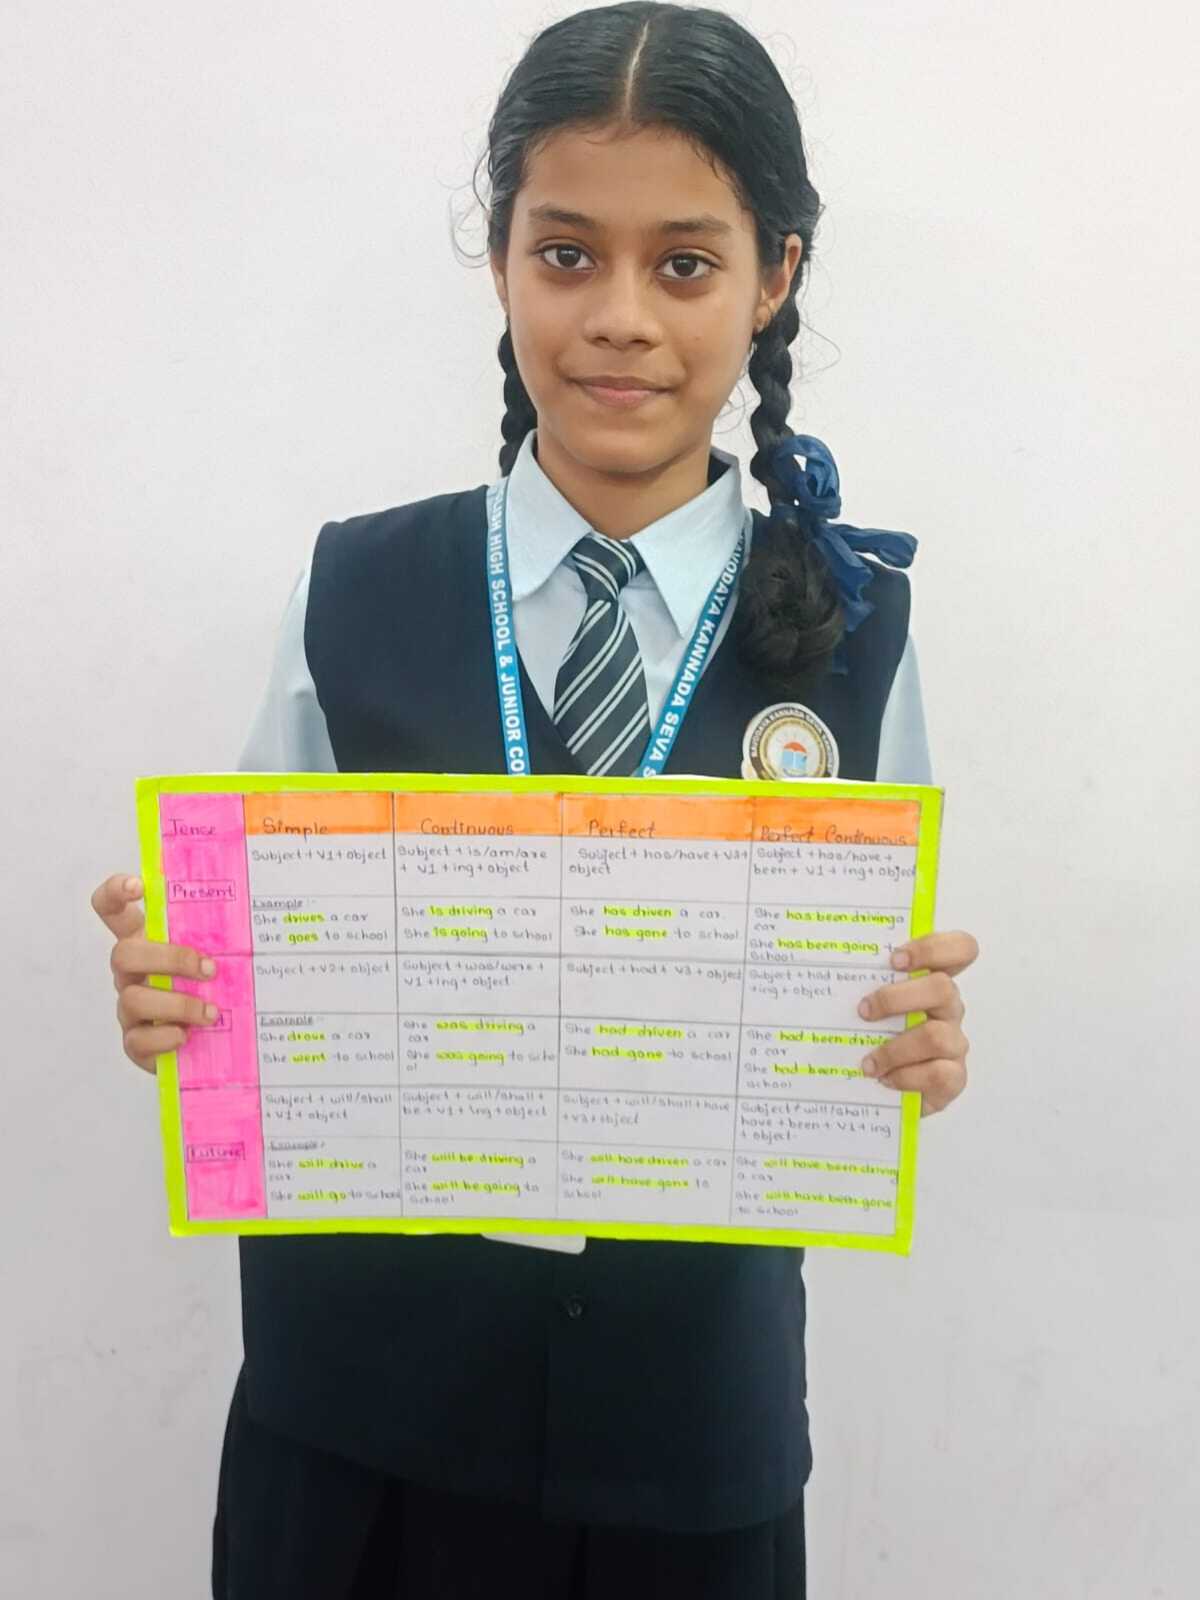 LISH HIGH SCHOOL & JUNIOR CO
NAVODAYA KANNADA SEVA S
Tense
Simple
Continuous
Perfect
Perfect Continuous
Present
Subject + V1 + object
Subject + is/am/are
+ V1 + ing + object
Subject + has/have + V3 +
object
Subject + has/have +
been + V1 + ing + object
Example :-
She drives a car
She goes to school
She is driving a car
She is going to school
She has driven a car.
She has gone to school
She has been driving a
car
She has been going t
School
Subject + V2 + object
Subject + was/were +
V1 + ing + object.
Subject + had + V3 + object
Subject + had been + V1
+ing + object.
Example :-
She drove a car
She went to school
She was driving a
car
She was going to scho
ol
She had driven a car
She had gone to school
She had been drivin
a car
She had been goi
school
Future
Subject + will/shall
+ V1 + object
Subject + will/shall +
be + V1 + ing + object
Subject + will/shall + have
+ V3 + object
Subject + will/shall +
have + been + V1 + ing
+ object.
Example :-
She will drive a
car
She will go to school
She will be driving a
car
She will be going to
School
She will have driven a car
She will have gone to
school
She will have been driving
a car
She will have been gone
to school